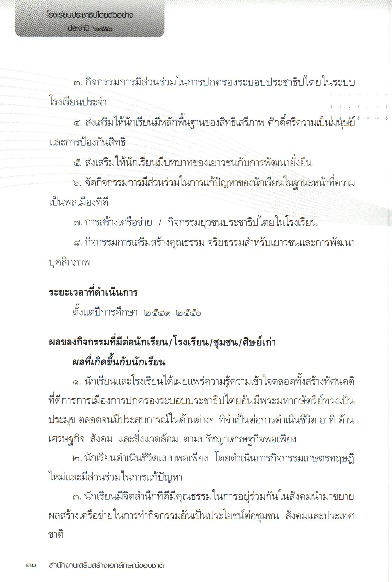 โรงเรียนประชาธิปไตยตัวอย่าง
ประจำปี ๒๕๕๐
๓. กิจกรรมการมีส่วนร่วมในการปกครองระบอบประชาธิปไตยในระบบ
โรงเรียนประจำ
๔. ส่งเสริมให้นักเรียนมีหลักพื้นฐานของสิทธิเสรีภาพ ศักดิ์ศรีความเป็นมนุษย์
และการป้องกันสิทธิ
๕. ส่งเสริมให้นักเรียนมีบทบาทของเยาวชนกับการพัฒนายั่งยืน
๖. จัดกิจกรรมการมีส่วนร่วมในการแก้ปัญหาของนักเรียนในฐานะหน้าที่ความ
เป็นพลเมืองที่ดี
๗. การสร้างเครือข่าย / กิจกรรมยุวชนประชาธิปไตยในโรงเรียน
๘. กิจกรรมการเสริมสร้างคุณธรรม จริยธรรมสำหรับเยาวชนและการพัฒนา
บุคลิกภาพ
ระยะเวลาที่ดำเนินการ
ตั้งแต่ปีการศึกษา ๒๕๔๑ ๒๕๕๐
ผลของกิจกรรมที่มีต่อนักเรียน/โรงเรียน/ชุมชน/ศิษย์เก่า
ผลที่เกิดขึ้นกับนักเรียน
๑. นักเรียนและโรงเรียนได้เผยแพร่ความรู้ความเข้าใจตลอดทั้งสร้างทัศนคติ
ที่ดีการการเมืองการปกครองระบอบประชาธิปไตยอันมีพระมหากษัตริย์ทรงเป็น
ประมุข ตลอดจนมีประสบการณ์ในด้านต่างๆ ที่จำเป็นต่อการดำเนินชีวิต ด้าน
เศรษฐกิจ สังคม และสิ่งแวดล้อม ตามปรัชญาเศรษฐกิจพอเพียง
๒. นักเรียนดำเนินชีวิตแบบพอเพียง โดยดำเนินการกิจกรรมเกษตรทฤษฎี
ใหม่และมีส่วนร่วมในการแก้ปัญหา
๓. นักเรียนมีจิตสำนึกที่ดีมีคุณธรรมในการอยู่ร่วมกันในสังคมนำมาขยาย
ผลสร้างเครือข่ายในการทำกิจกรรมอันเป็นประโยชน์ต่อชุมชน สังคมและประเทศ
ชาติ
สำนักงานเสริมสร้างเอกลักษณ์ของชาติ